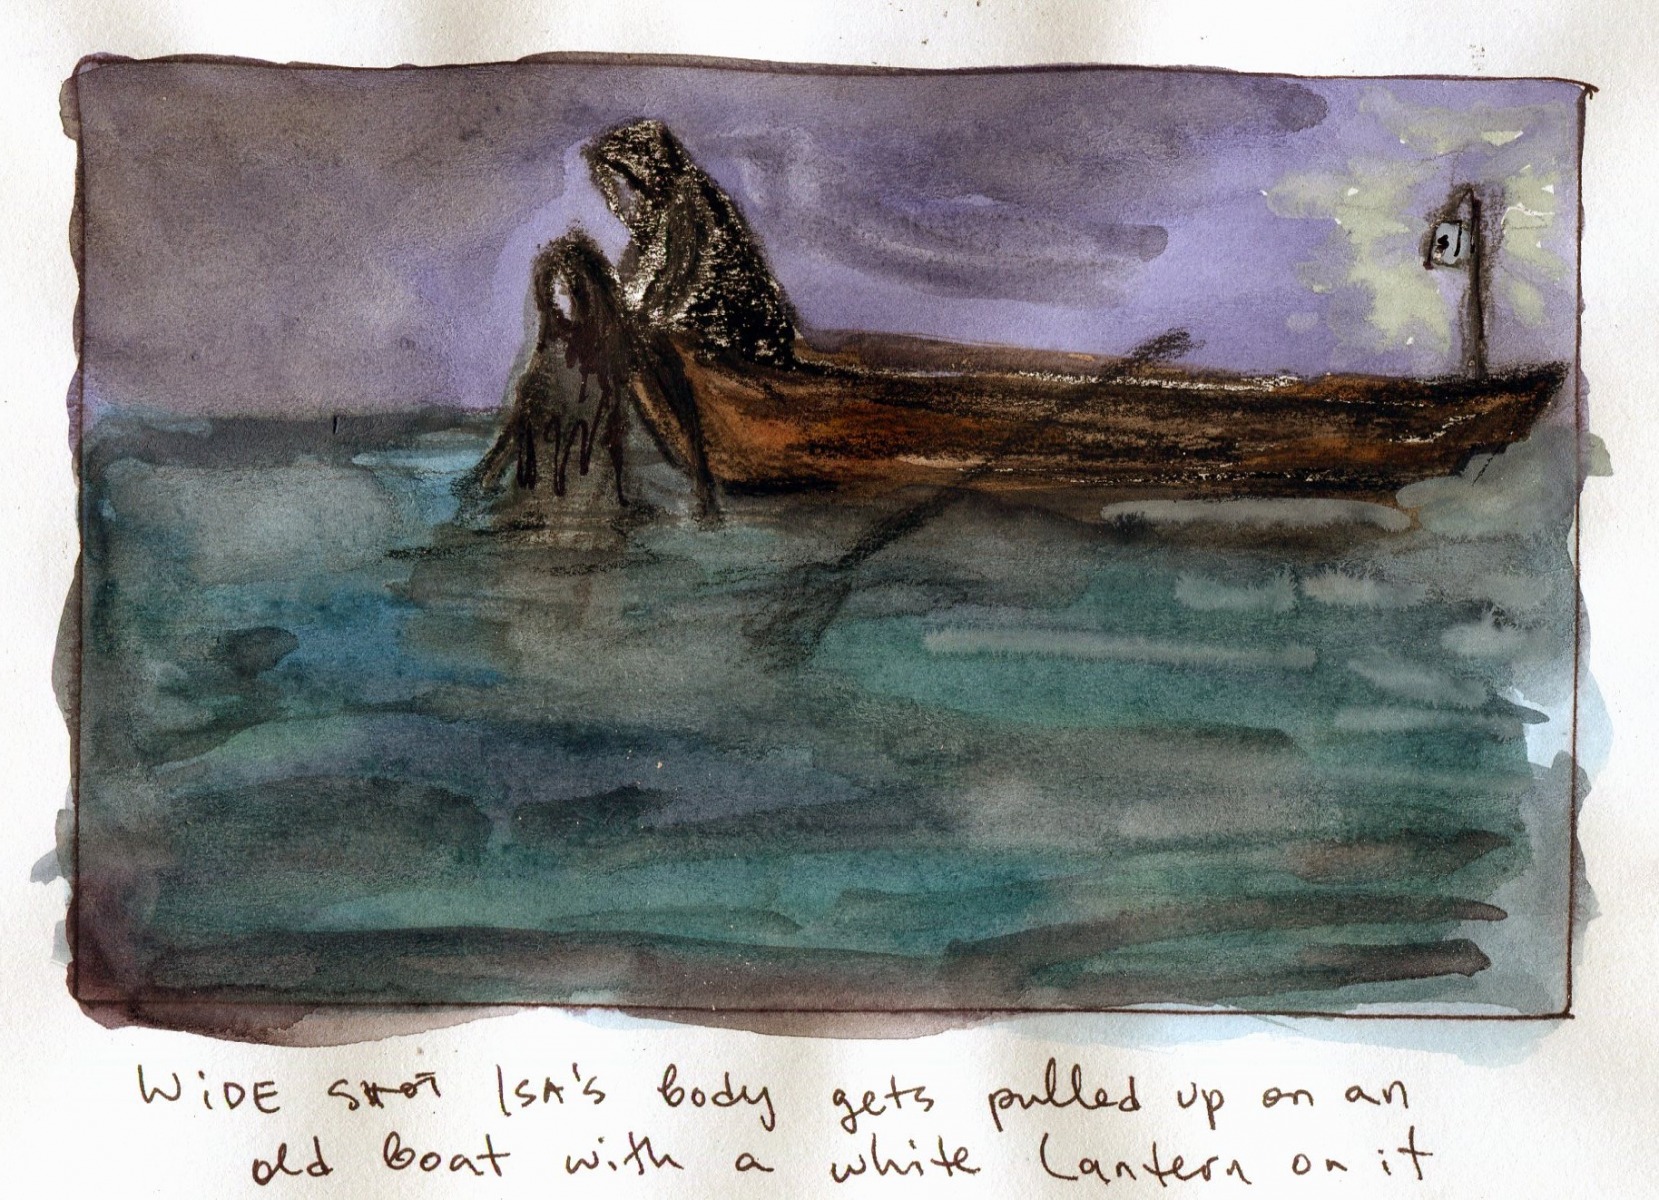 WiDE SHOT ISA's body gets pulled up on an
old boat with a white Lantern on it